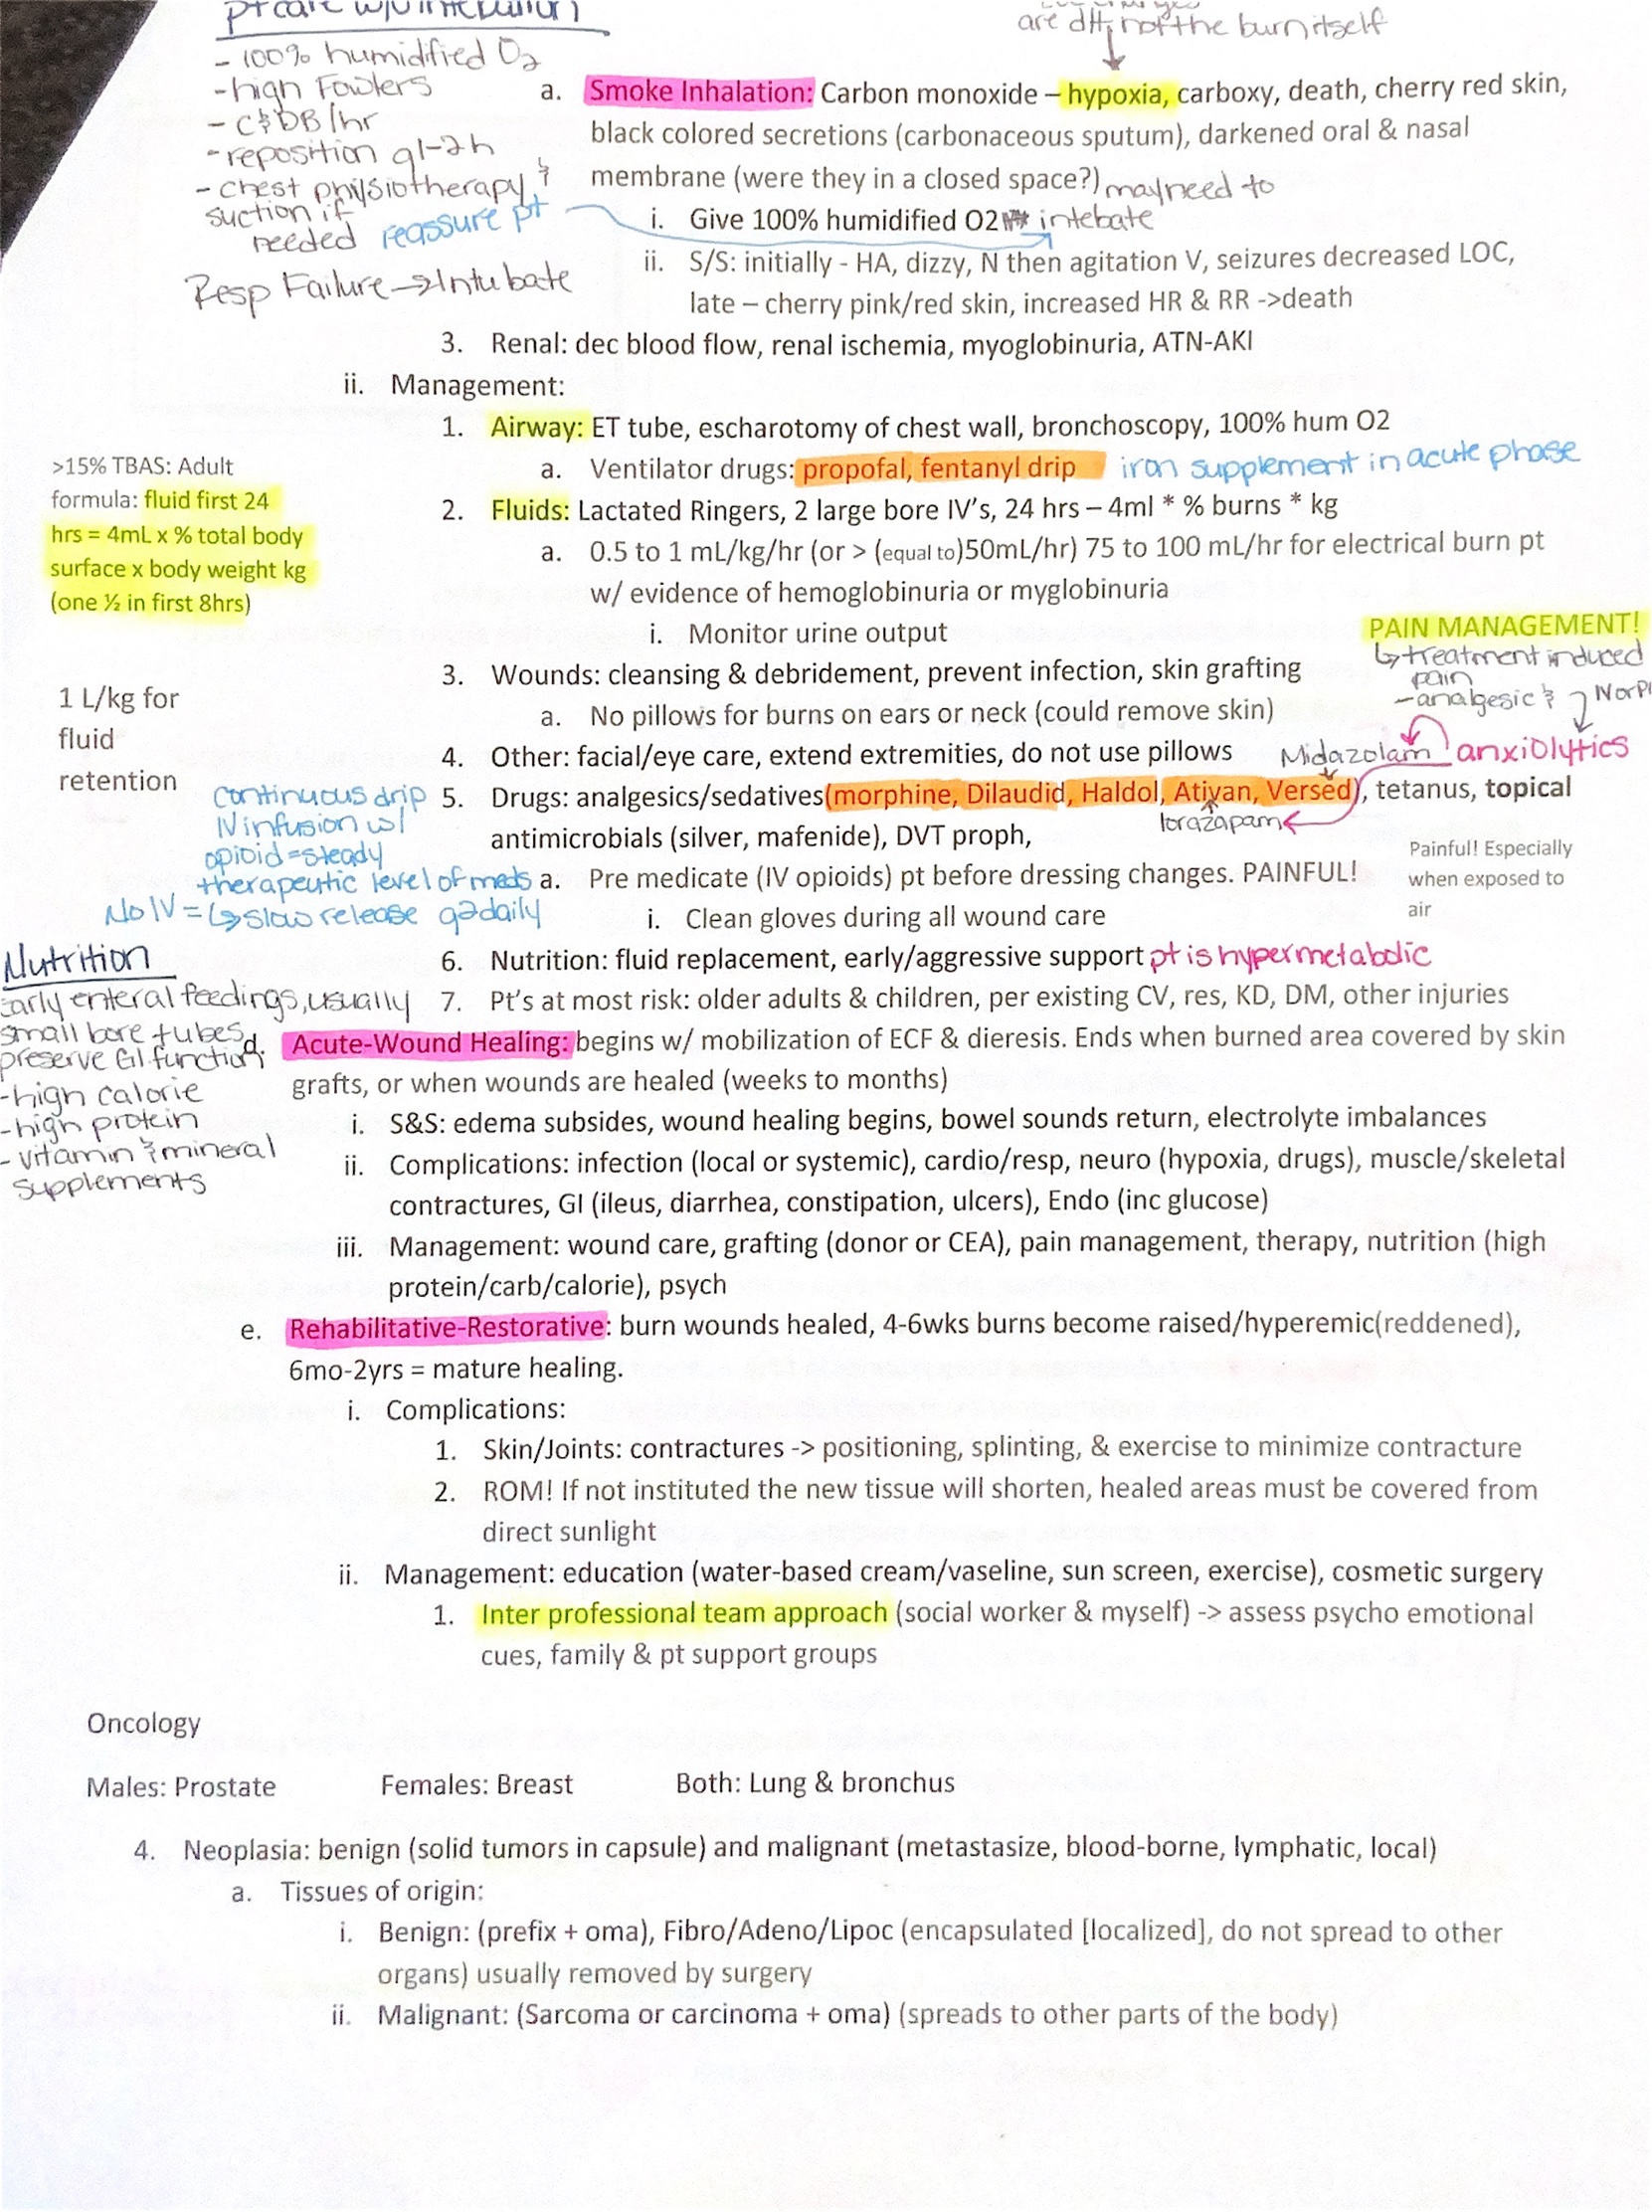 pt care w/o intubation
- 100% humidified O2
- high Fowlers
- C&DB/hr
- reposition q1-2h
- chest physiotherapy &
suction if
needed reassure pt
Resp Failure → Intubate
are d/t, not the burn itself
a. Smoke Inhalation: Carbon monoxide – hypoxia, carboxy, death, cherry red skin,
black colored secretions (carbonaceous sputum), darkened oral & nasal
membrane (were they in a closed space?) may need to
i. Give 100% humidified O2 intebate
ii. S/S: initially - HA, dizzy, N then agitation V, seizures decreased LOC,
late – cherry pink/red skin, increased HR & RR ->death
3. Renal: dec blood flow, renal ischemia, myoglobinuria, ATN-AKI
ii. Management:
1. Airway: ET tube, escharotomy of chest wall, bronchoscopy, 100% hum O2
a. Ventilator drugs: propofal, fentanyl drip iron supplement in acute phase
>15% TBAS: Adult
formula: fluid first 24
hrs = 4mL x % total body
surface x body weight kg
(one ½ in first 8hrs)
2. Fluids: Lactated Ringers, 2 large bore IV's, 24 hrs – 4ml * % burns * kg
a. 0.5 to 1 mL/kg/hr (or > (equal to)50mL/hr) 75 to 100 mL/hr for electrical burn pt
w/ evidence of hemoglobinuria or myglobinuria
i. Monitor urine output
PAIN MANAGEMENT!
↳ treatment induced
pain
- analgesic &
anxiolytics
Midazolam
1 L/kg for
fluid
retention
3. Wounds: cleansing & debridement, prevent infection, skin grafting
a. No pillows for burns on ears or neck (could remove skin)
4. Other: facial/eye care, extend extremities, do not use pillows
5. Drugs: analgesics/sedatives(morphine, Dilaudid, Haldol, Ativan, Versed), tetanus, topical
lorazapam
antimicrobials (silver, mafenide), DVT proph,
continuous drip
IV infusion w/
opioid = steady
therapeutic level of meds
No IV = ↳ slow release q2daily
a. Pre medicate (IV opioids) pt before dressing changes. PAINFUL!
i. Clean gloves during all wound care
Painful! Especially
when exposed to
air
6. Nutrition: fluid replacement, early/aggressive support pt is hypermetabolic
7. Pt's at most risk: older adults & children, per existing CV, res, KD, DM, other injuries
Nutrition
Early enteral feedings, usually
small bore tubes
preserve GI function
- high calorie
- high protein
- vitamin & mineral
supplements
d. Acute-Wound Healing: begins w/ mobilization of ECF & dieresis. Ends when burned area covered by skin
grafts, or when wounds are healed (weeks to months)
i. S&S: edema subsides, wound healing begins, bowel sounds return, electrolyte imbalances
ii. Complications: infection (local or systemic), cardio/resp, neuro (hypoxia, drugs), muscle/skeletal
contractures, GI (ileus, diarrhea, constipation, ulcers), Endo (inc glucose)
iii. Management: wound care, grafting (donor or CEA), pain management, therapy, nutrition (high
protein/carb/calorie), psych
e. Rehabilitative-Restorative: burn wounds healed, 4-6wks burns become raised/hyperemic(reddened),
6mo-2yrs = mature healing.
i. Complications:
1. Skin/Joints: contractures -> positioning, splinting, & exercise to minimize contracture
2. ROM! If not instituted the new tissue will shorten, healed areas must be covered from
direct sunlight
ii. Management: education (water-based cream/vaseline, sun screen, exercise), cosmetic surgery
1. Inter professional team approach (social worker & myself) -> assess psycho emotional
cues, family & pt support groups
Oncology
Males: Prostate Females: Breast Both: Lung & bronchus
4. Neoplasia: benign (solid tumors in capsule) and malignant (metastasize, blood-borne, lymphatic, local)
a. Tissues of origin:
i. Benign: (prefix + oma), Fibro/Adeno/Lipoc (encapsulated [localized], do not spread to other
organs) usually removed by surgery
ii. Malignant: (Sarcoma or carcinoma + oma) (spreads to other parts of the body)